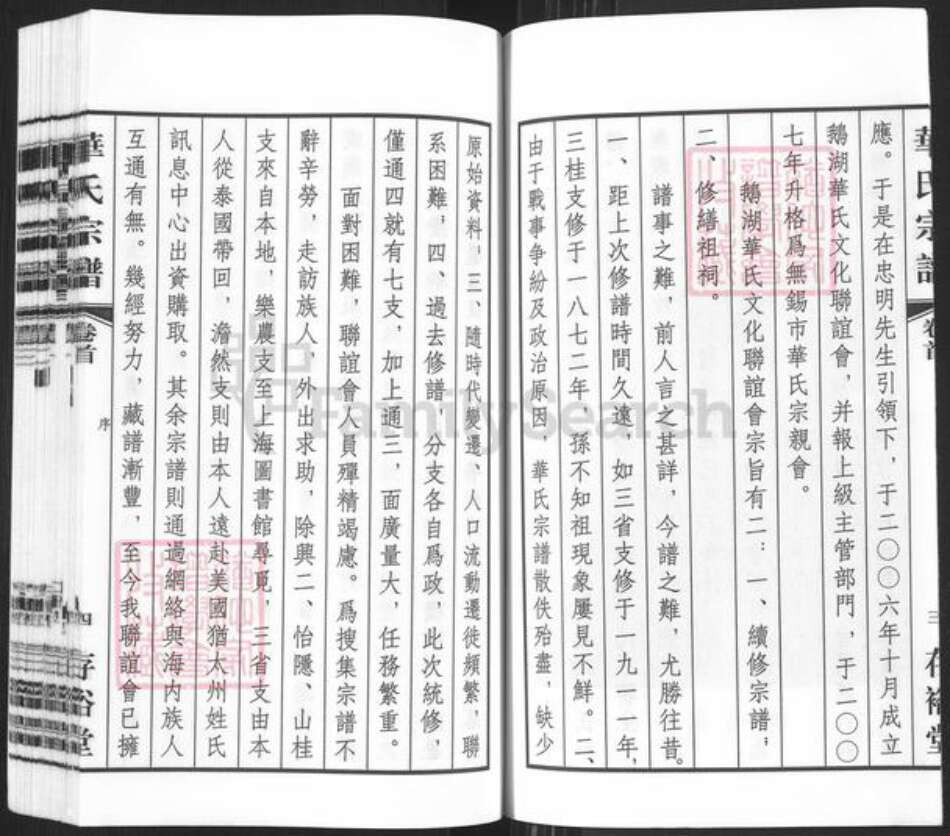 華氏宗譜 卷首 三 存裕堂
應。于是在忠明先生引領下，于二〇〇六年十月成立
鵝湖華氏文化聯誼會，并報上級主管部門，于二〇〇
七年升格爲無錫市華氏宗親會。
鵝湖華氏文化聯誼會宗旨有二：一、續修宗譜；
二、修繕祖祠。
譜事之難，前人言之甚詳，今譜之難，尤勝往昔。
一、距上次修譜時間久遠，如三省支修于一九一一年，
三桂支修于一八七二年，孫不知祖現象屢見不鮮。二、
由于戰事争紛及政治原因，華氏宗譜散佚殆盡，缺少
原始資料，三、隨時代變遷、人口流動遷徙頻繁，聯
系困難，四、過去修譜，分支各自爲政，此次統修，
僅通四就有七支，加上通三，面廣量大，任務繁重。
面對困難，聯誼會人員殫精竭慮。爲搜集宗譜不
辭辛勞，走訪族人，外出求助，除興二、怡隱、山桂
支來自本地，樂農支至上海圖書館尋覓，三省支由本
人從泰國帶回，澹然支則由本人遠赴美國猶太州姓氏
訊息中心出資購取。其余宗譜則通過網絡與海内族人
互通有無。幾經努力，藏譜漸豐，至今我聯誼會已擁
華氏宗譜 卷首 序 四 存裕堂
FamilySearch